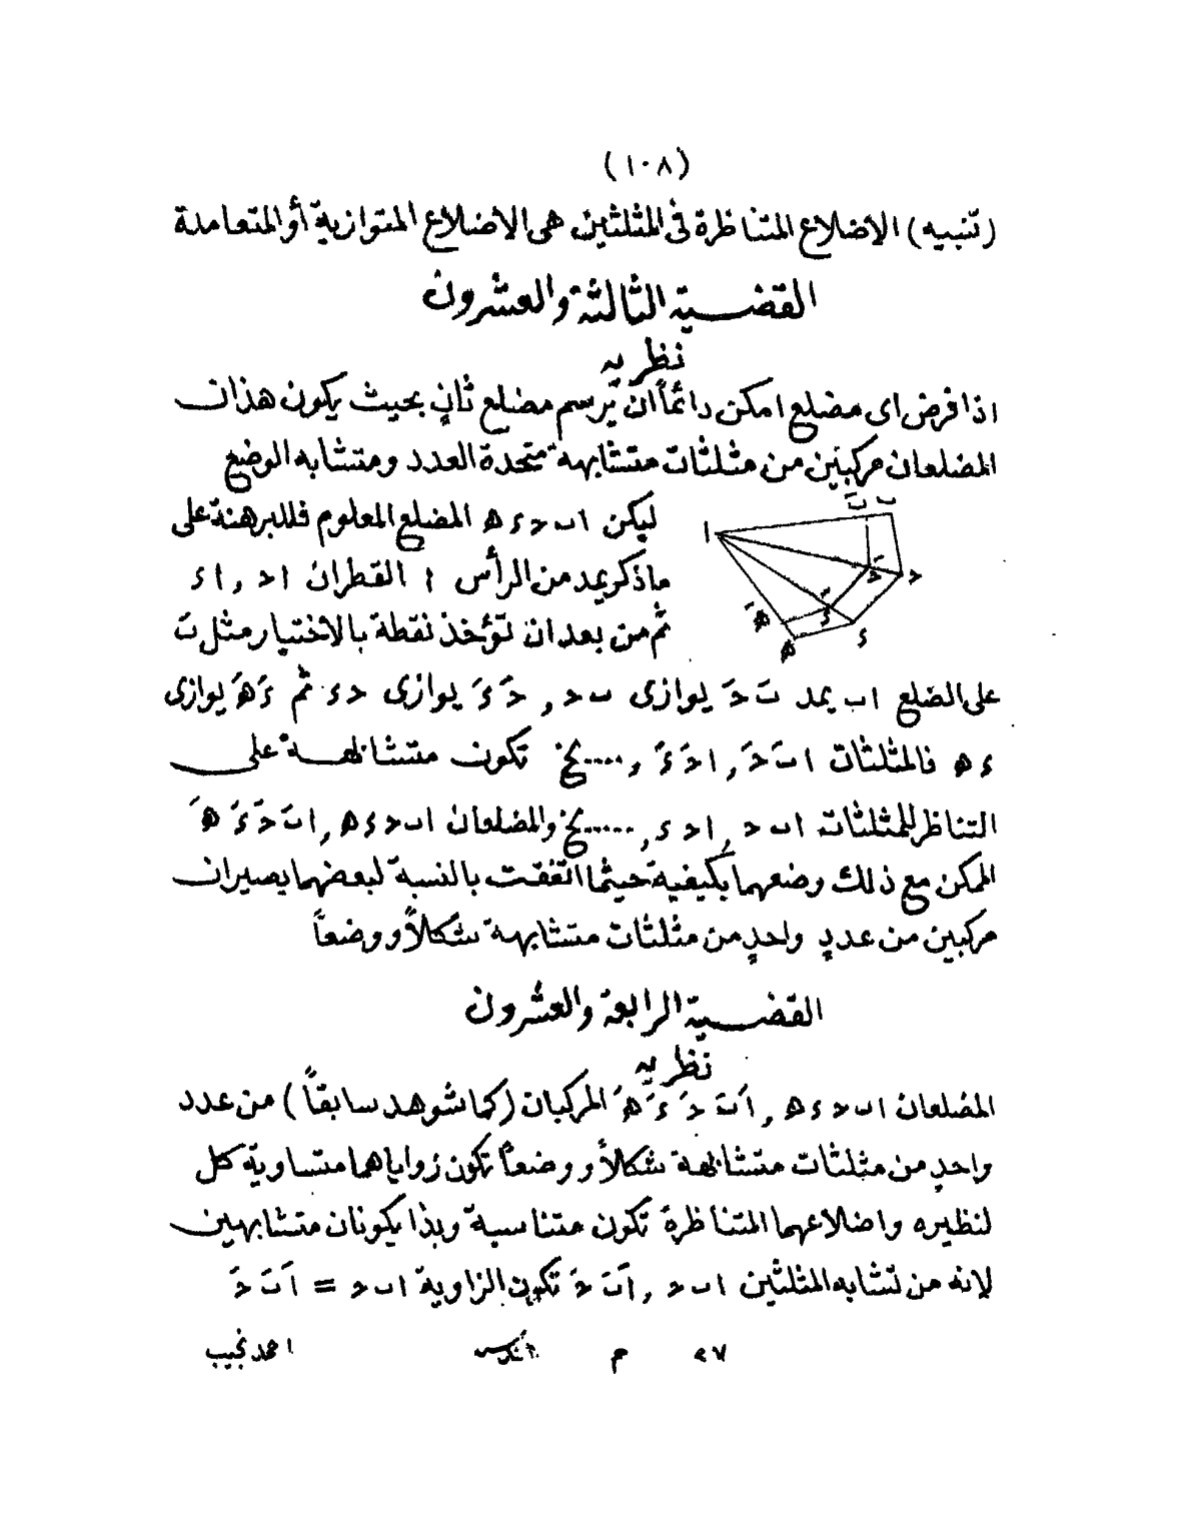 (١٠٨)
(تنبيه) الاضلاع المتناظرة فى المثلثين هى الاضلاع المتوازية أو المتعامدة
القضية الثالثة والعشرون
نظريه
اذا فرض اى مضلع امكن دائماً ان يرسم مضلع ثانٍ بحيث يكون هذان
المضلعان مركبين من مثلثات متشابهة متحدة العدد ومتشابه الوضع
ليكن ا ب ح د ه المضلع المعلوم فللبرهنة على
ماذكر يمد من الرأس ا القطران ا ح , ا د
ثم من بعد ان تؤخذ نقطة بالاختيار مثل بَ
على الضلع ا ب يمد بَ حَ يوازى ب ح , حَ دَ يوازى ح د ثم دَ هَ يوازى
د ه فالمثلثات ا بَ حَ , ا حَ دَ , .... الخ تكون متشابهة على
التناظر للمثلثات ا ب ح , ا ح د , ..... الخ والمضلعان ا ب ح د ه , ا بَ حَ دَ هَ
الممكن مع ذلك وضعهما بكيفية حيثما اتفقت بالنسبة لبعضهما يصيران
مركبين من عددٍ واحدٍ من مثلثات متشابهة شكلاً ووضعاً
القضية الرابعة والعشرون
نظريه
المضلعان ا ب ح د ه , اَ بَ حَ دَ هَ المركبان (كما شوهد سابقاً) من عدد
واحدٍ من مثلثات متشابهة شكلاً ووضعاً تكون زواياهما متساوية كل
لنظيره واضلاعهما المتناظرة تكون متناسبة وبذا يكونان متشابهين
لانه من تشابه المثلثين ا ب ح , اَ بَ حَ تكون الزاوية ا ب ح = اَ بَ حَ
٢٧ م احمد نجيب
ا ب بَ ح حَ د دَ ه هَ